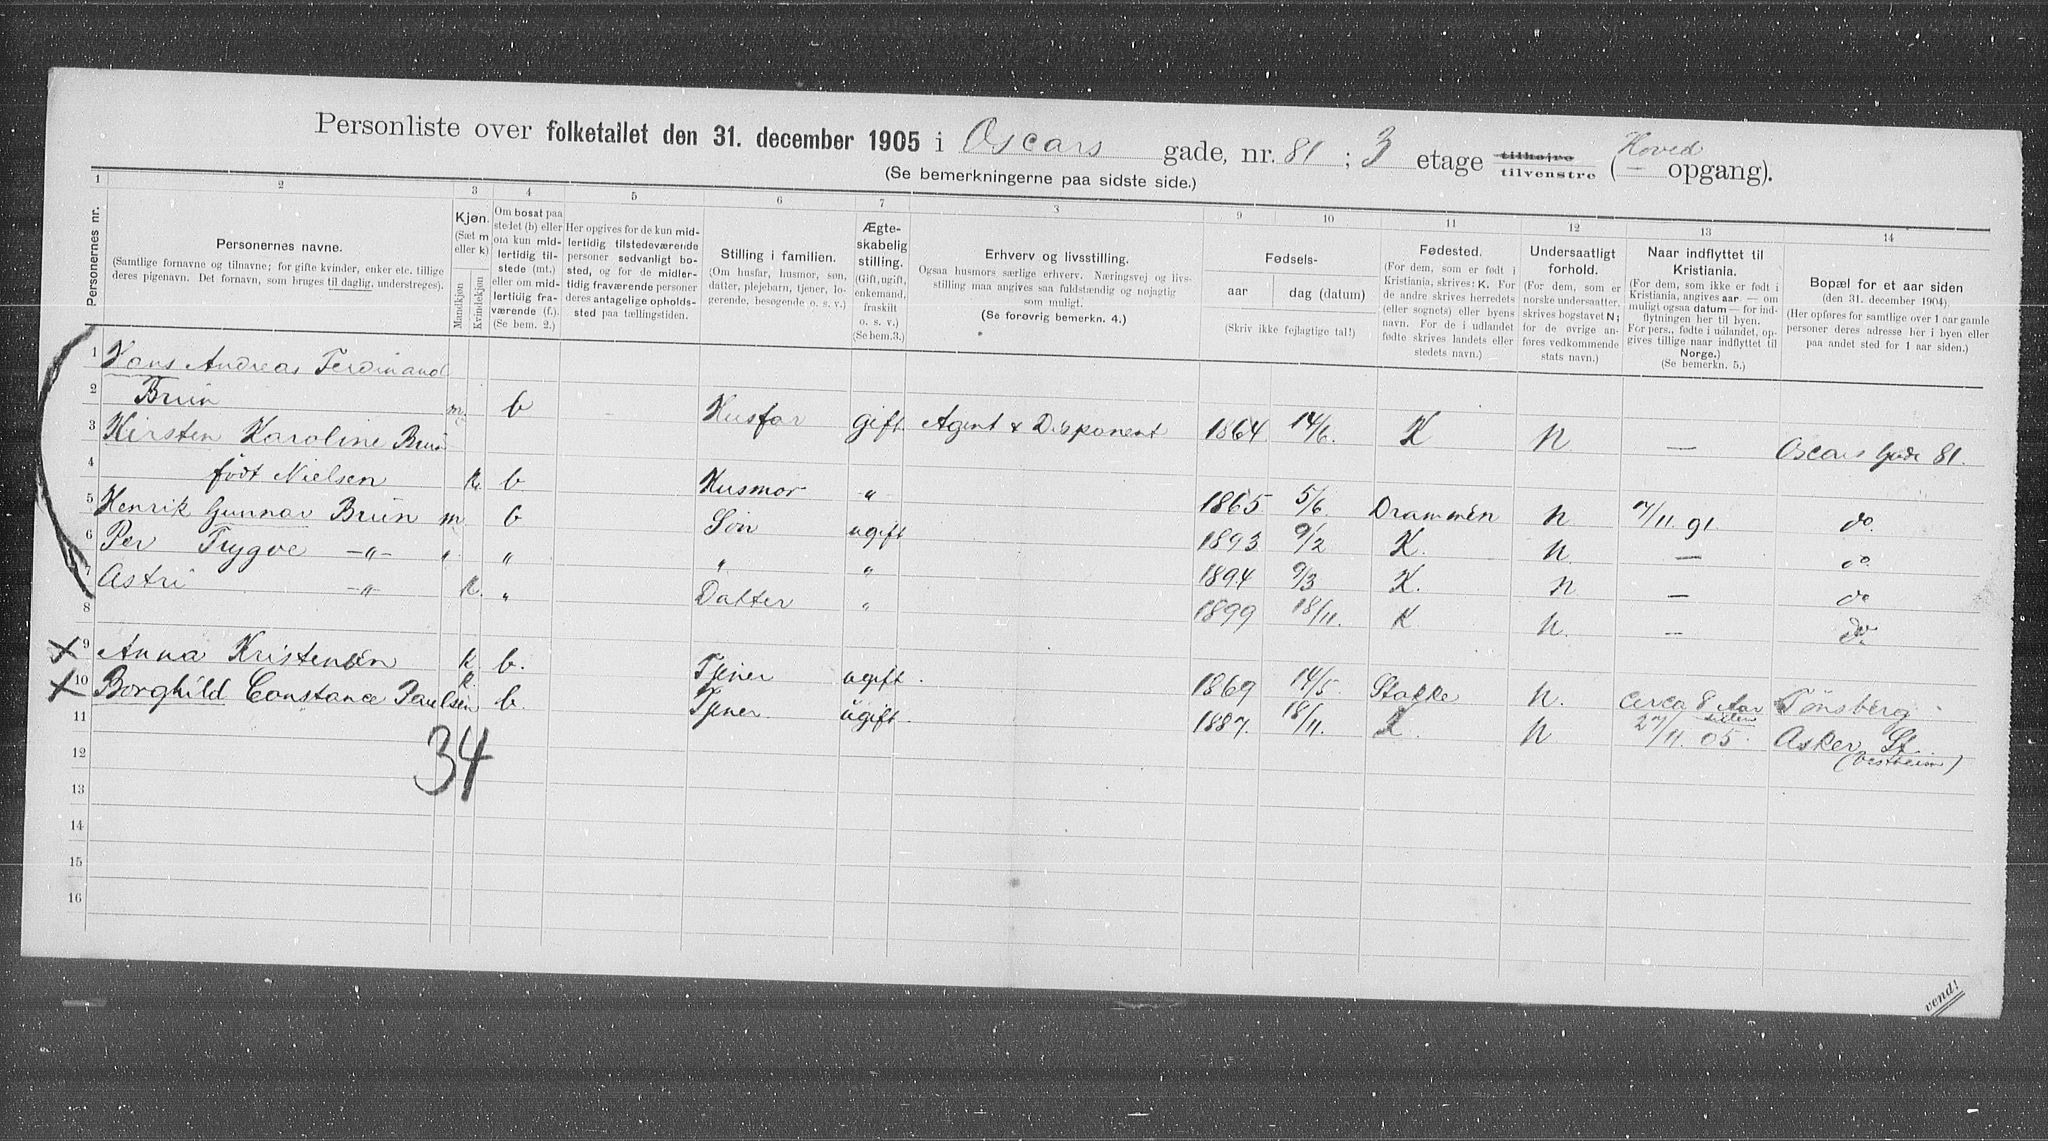 Personliste over folketallet den 31. december 1905 i Oscars gade, nr. 81 ; 3 etage tilhøjre tilvenstre (Hoved opgang).
(Se bemerkningerne paa sidste side.)
1 2 3 4 5 6 7 3 9 10 11 12 13 14
Personernes nr.
Personernes navne.
(Samtlige fornavne og tilnavne; for gifte kvinder, enker etc. tillige
deres pigenavn. Det fornavn, som bruges til daglig, understreges).
Kjøn.
(Sæt m
eller k)
Mandkjøn
Kvindekjøn
Om bosat paa
stedet (b) eller
om kun mid-
lertidig til-
stede (mt.)
eller om mid-
lertidig fra-
værende (f.).
(Se bem. 2.)
Her opgives for de kun mid-
lertidig tilstedeværende
personer sedvanlig bo-
sted, og for de midler-
tidig fraværende personer
deres antagelige opholds-
sted paa tællingstiden.
Stilling i familien.
(Om husfar, husmor, søn,
datter, plejebarn, tjener, lo-
gerende, besøgende o. s. v.)
Ægte-
skabelig
stilling.
(Gift, ugift,
enkemand,
fraskilt
o. s. v.)
(Se bem.3.)
Erhverv og livsstilling.
Ogsaa husmors særlige erhverv. Næringsvej og livs-
stilling maa angives saa fuldstændig og nøjagtig
som muligt.
(Se forøvrig bemerkn. 4.)
Fødsels-
aar
dag (datum)
(Skriv ikke fejlagtige tal!)
Fødested.
(For dem, som er født i
Kristiania, skrives: K. For
de andre skrives herredets
(eller sognets) eller byens
navn. For de i udlandet
fødte skrives landets eller
stedets navn.)
Undersaatligt
forhold.
(For dem, som er
norske undersaatter,
skrives bogstavet N;
for de øvrige an-
føres vedkommende
stats navn.)
Naar indflyttet til
Kristiania.
(For dem, som ikke er født i
Kristiania, angives aar — om
muligt ogsaa datum — for ind-
flytningen her til byen.
For pers., fødte i udlandet, op-
gives tillige naar indflyttet til
Norge.)
(Se bemerkn. 5.)
Bopæl for et aar siden
(den 31. december 1904).
(Her opføres for samtlige over 1 aar gamle
personer deres adresse her i byen eller
paa andet sted for 1 aar siden.)
1 Hans Andreas Ferdinand
2 Brun m. b Husfar gift Agent & Disponent 1864 14/6. K N. — Oscars Gade 81.
3 Kirsten Karoline Brun
4 født Nielsen k. b Husmor " 1865 5/6 Drammen N 7/11 91 do.
5 Henrik Gunnar Brun m b Søn ugift 1893 9/2 K. N. — do.
6 Per Trygve —"— " " " " 1894 9/3 K. N — do
7 Astri —"— k. " Datter " 1899 18/11. K N. — do
8
9 Anna Kristensen k b. Tjener ugift. 1869 14/5 Stokke N. circa 8 Aar siden Tønsberg
10 Borghild Constance Paulsen k b. Tjener. ugift. 1887. 18/11. K. N 27/11. 05. Asker St. (Vestheim)
11
34
12
13
14
15
16
vend!